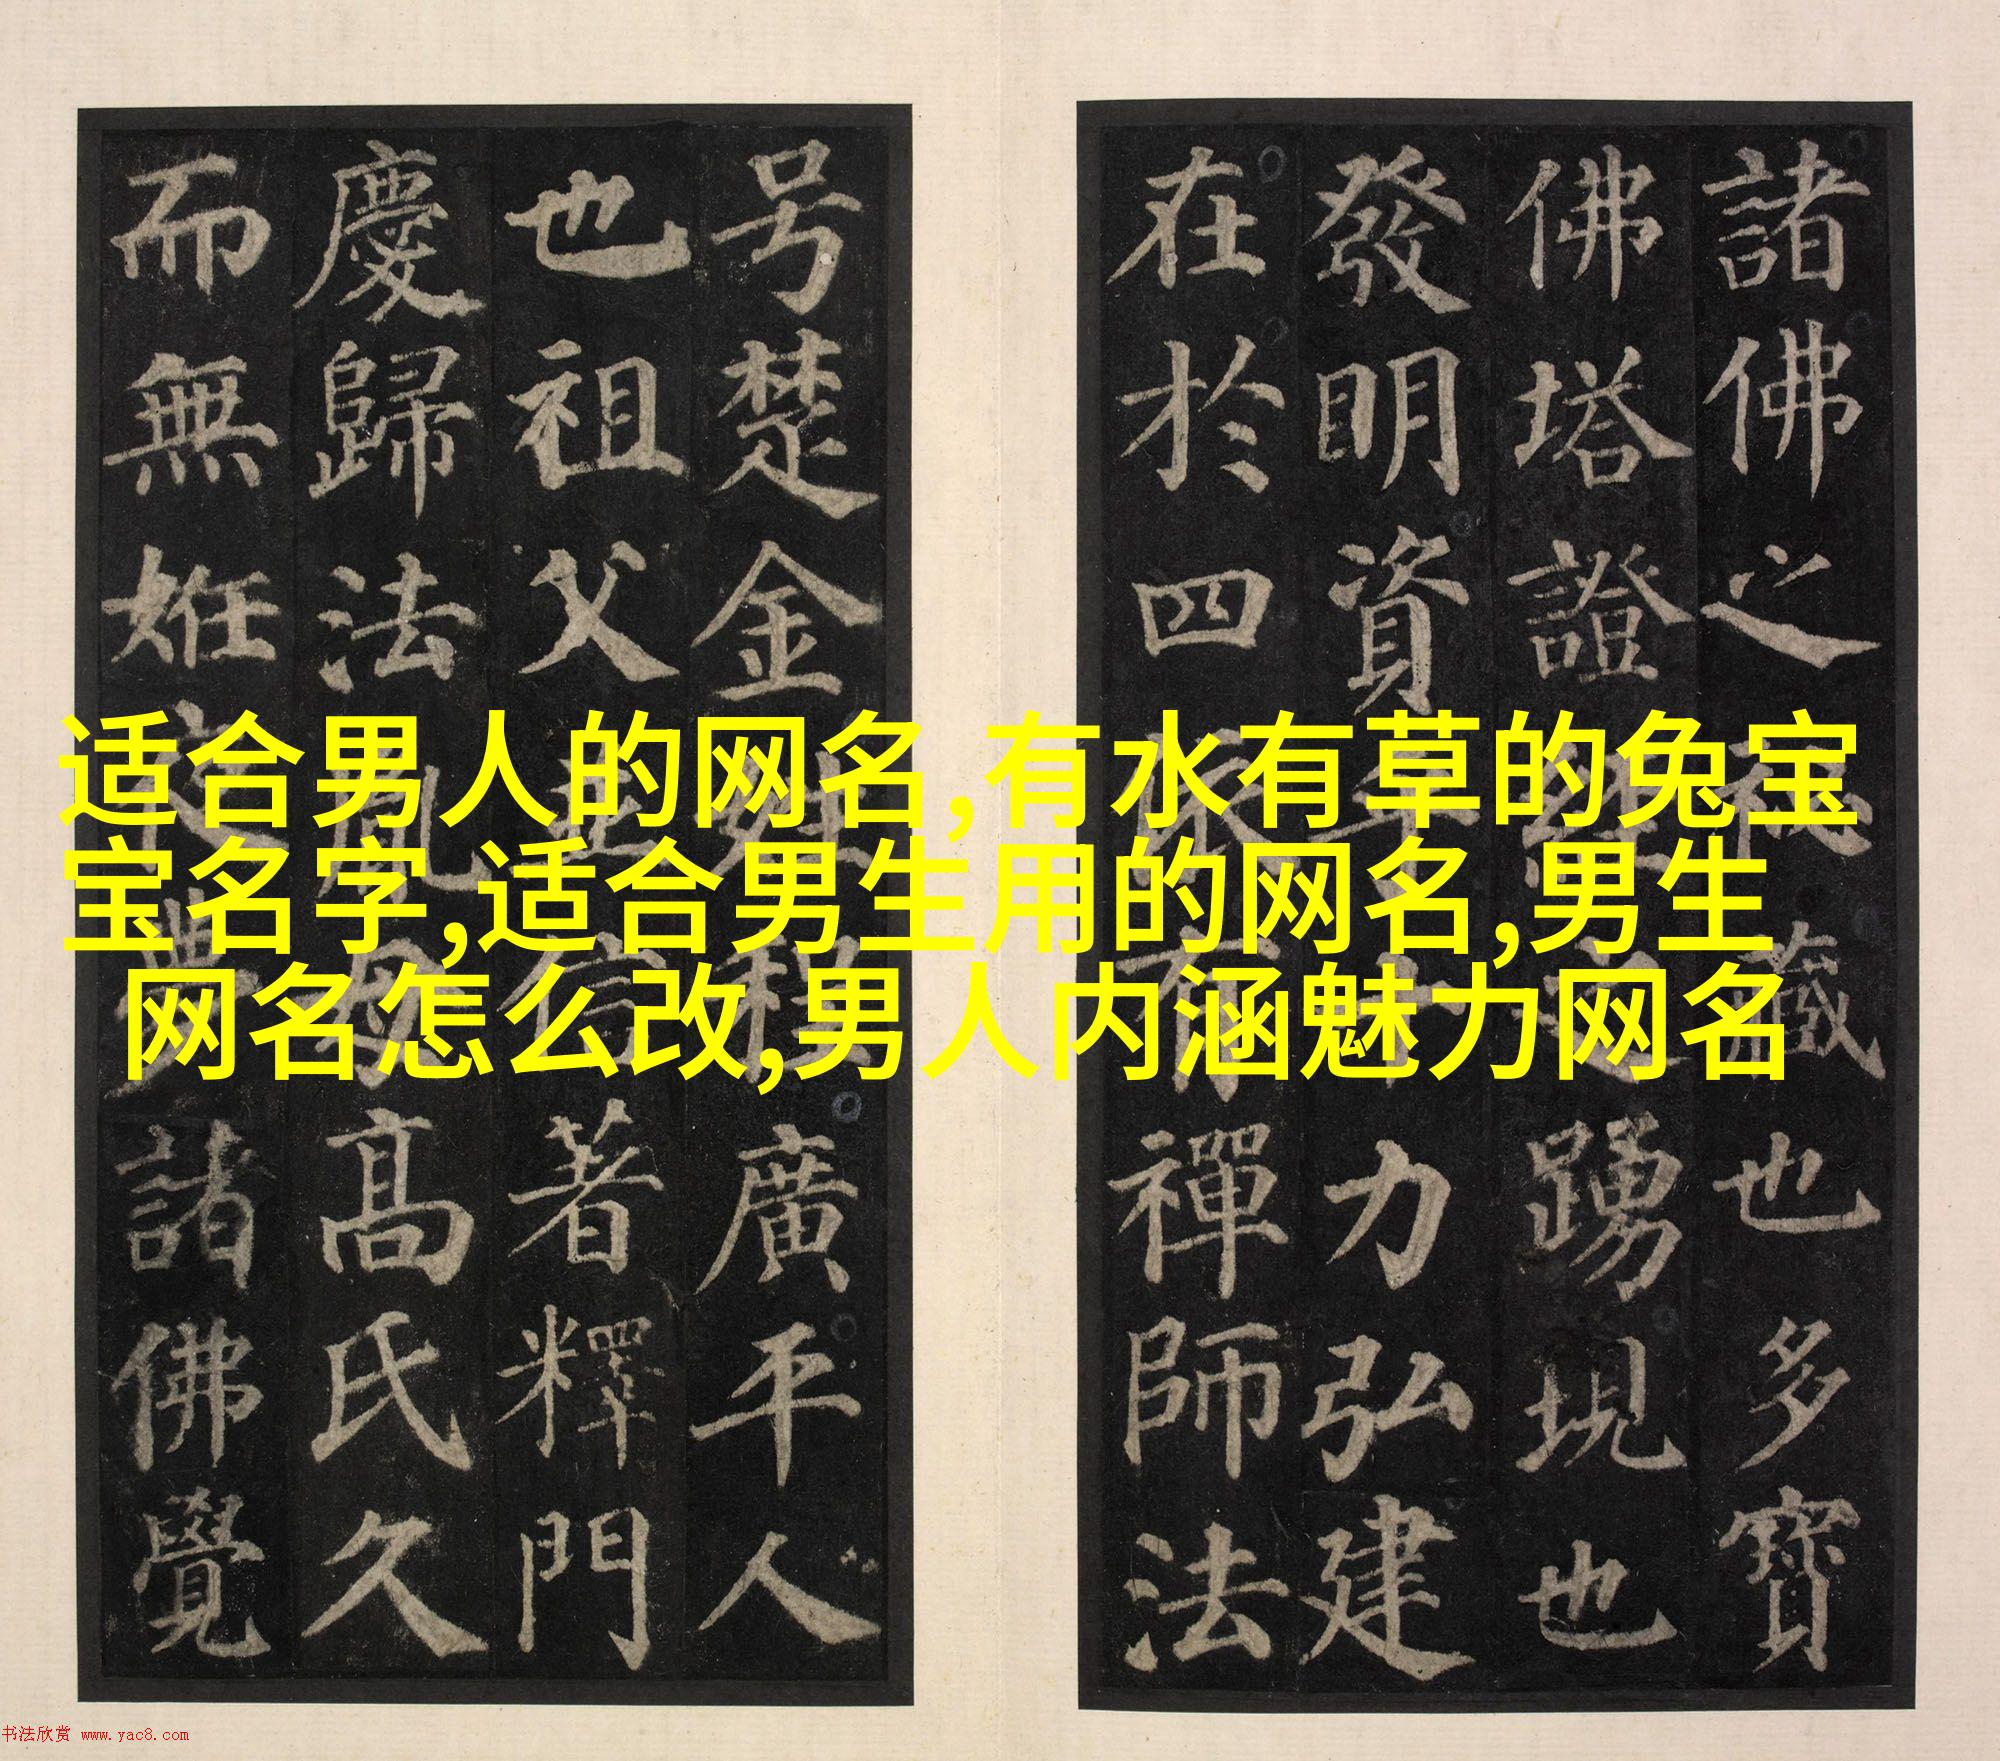 諸佛之秘藏也多寶
佛塔證經之踴現也
發明資乎十力弘建
在於四衆有禪師法
号楚金姓程廣平人
也祖父並信著釋門
慶歸法胤母高氏久
而無姙夜夢諸佛覺
适合男人的网名,有水有草的兔宝
宝名字,适合男生用的网名,男生
网名怎么改,男人内涵魅力网名
书法欣赏 www.yac8.com